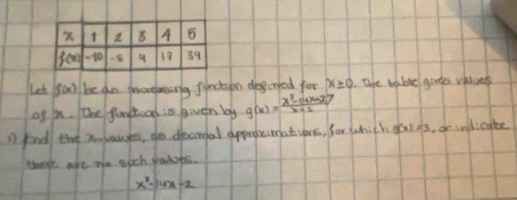 x 1 2 3 4 5
f(x) -10 -5 4 17 34
Let f(x) be an increasing function defined for x≥0. The table gives values
of x. The function is given by g(x)=
i) find the x-values, as decimal approximations, for which g(x)=3, or indicate
there are no such values.
x³-14x-2